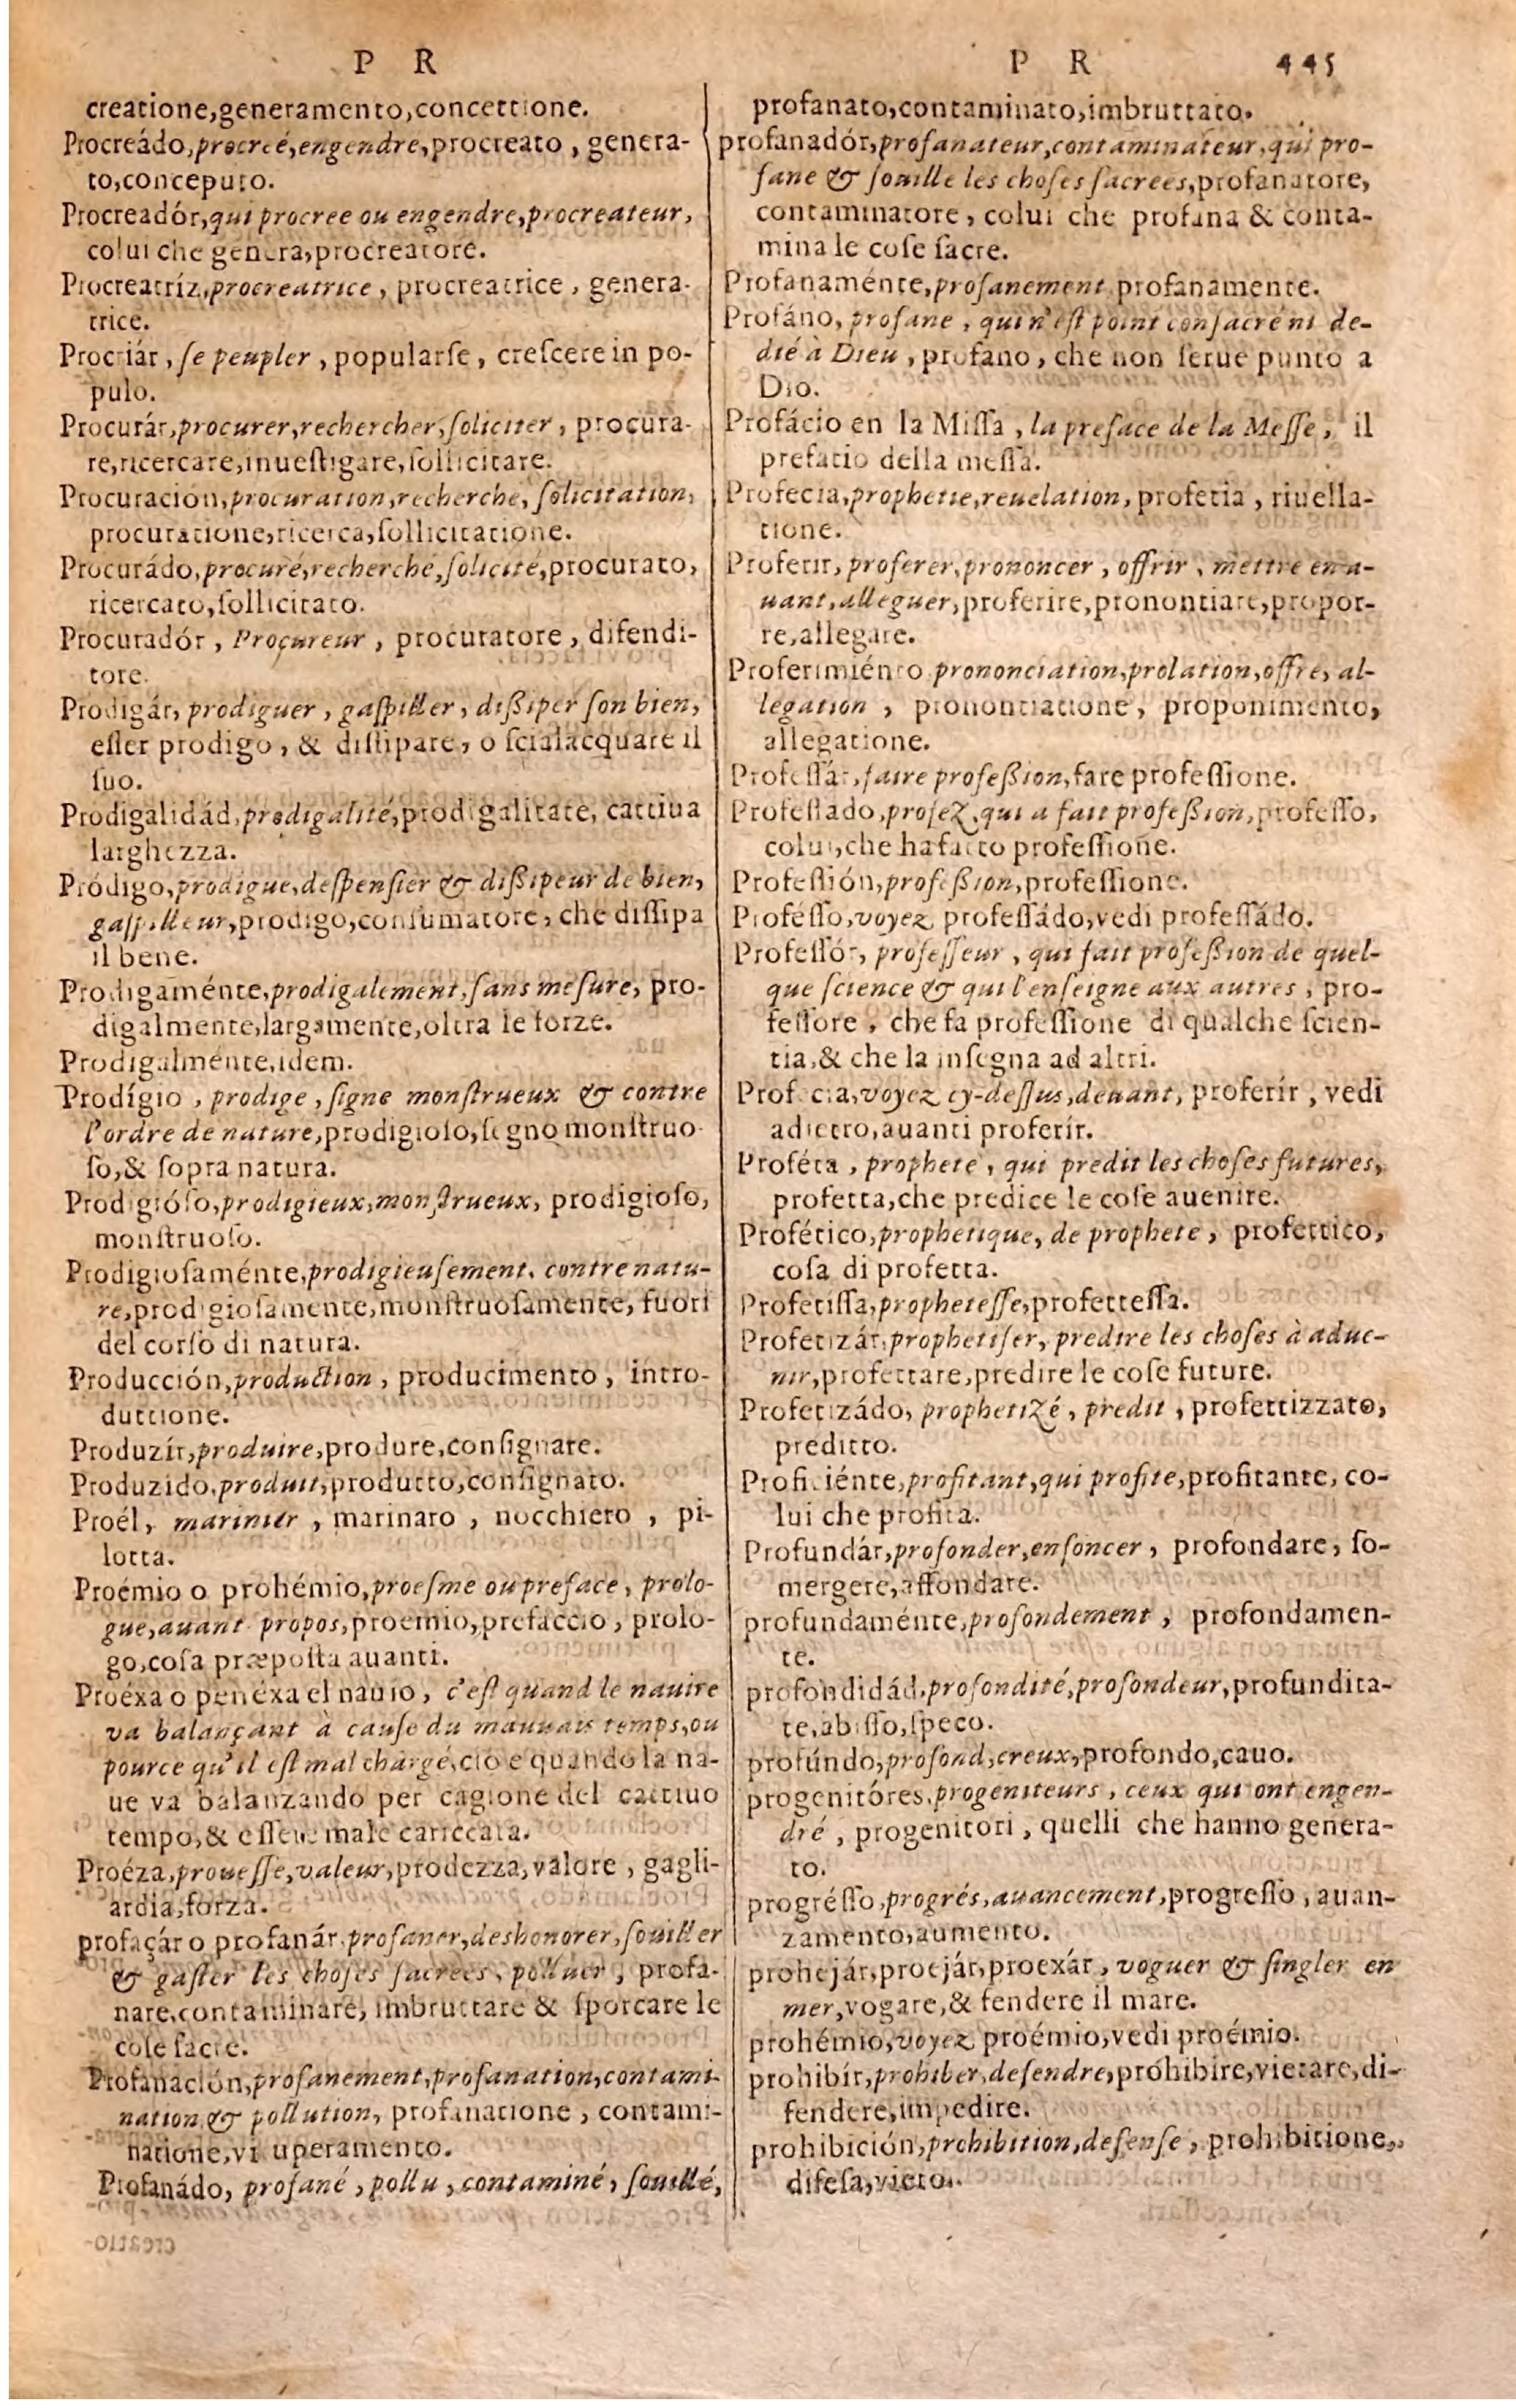 P R
creatione,generamento,concettione.
Procreádo,procreé,engendre,procreato , genera-
to,conceputo.
Procreadór,qui procree ou engendre,procreateur,
colui che genera,procreatore.
Procreatríz,procreatrice , procreatrice , genera-
trice.
Procriár , ſe peupler , popularſe , creſcere in po-
pulo.
Procurár,procurer,rechercher,ſoliciter , procura-
re,ricercare,inueſtigare,ſollicitare.
Procuración,procuration,recherche, ſolicitation,
procuratione,ricerca,ſollicitatione.
Procurádo,procuré,recherché,ſolicité,procurato,
ricercato,ſollicitato.
Procuradór , Procureur , procuratore , difendi-
tore.
Prodigár, prodiguer , gaſpiller , dißiper ſon bien,
eſſer prodigo , & diſſipare, o ſcialacquare il
ſuo.
Prodigalidád,prodigalité,prodigalitate, cattiua
larghezza.
Pródigo,prodigue,deſpenſier & dißipeur de bien,
gaſpilleur,prodigo,conſumatore, che diſſipa
il bene.
Prodigaménte,prodigalement,ſans meſure, pro-
digalmente,largamente,oltra le forze.
Prodigalménte,idem.
Prodígio , prodige , ſigne monſtrueux & contre
l'ordre de nature,prodigioſo,ſegno monſtruo-
ſo,& ſopra natura.
Prodigióſo,prodigieux,monſtrueux, prodigioſo,
monſtruoſo.
Prodigioſaménte,prodigieuſement, contre natu-
re,prodigioſamente,monſtruoſamente, fuori
del corſo di natura.
Producción,production , producimento , intro-
duttione.
Produzír,produire,produre,conſignare.
Produzido,produit,produtto,conſignato.
Proél, marinier , marinaro , nocchiero , pi-
lotta.
Proémio o prohémio,proeſme ou preface, prolo-
gue,auant propos,proemio,prefaccio , prolo-
go,coſa præpoſta auanti.
Proéxa o penéxa el nauio , c'eſt quand le nauire
va balançant à cauſe du mauuais temps,ou
pource qu'il eſt mal chargé,cio e quando la na-
ue va balanzando per cagione del cattiuo
tempo,& eſſere male cariccata.
Proéza,proueſſe,valeur,prodezza,valore , gagli-
ardia,forza.
profaçár o profanár,profaner,deshonorer,ſouiller
& gaſter les choſes ſacrées, polluer , profa-
nare,contaminare, imbruttare & ſporcare le
coſe ſacre.
Profanación,profanement,profanation,contami-
nation & pollution, profanatione , contami-
natione,vi uperamento.
Profanádo, profané , pollu , contaminé, ſouillé,
P R 445
profanato,contaminato,imbruttato.
profanadór,profanateur,contaminateur,qui pro-
fane & ſouille les choſes ſacrees,profanatore,
contaminatore , colui che profana & conta-
mina le coſe ſacre.
Profanaménte,profanement,profanamente.
Profáno, profane , qui n'eſt point conſacré ni de-
dié à Dieu , profano , che non ſerue punto a
Dio.
Profácio en la Miſſa , la preface de la Meſſe, il
prefatio della meſſa.
Profecia,prophetie,reuelation, profetia , riuella-
tione.
Proferir, proferer,prononcer , offrir , mettre en a-
uant,alleguer,proferire,prononciare,propor-
re,allegare.
Proferimiénto prononciation,prolation,offre, al-
legation , prononciatione , proponimento,
allegatione.
Profeſſár,faire profeßion,fare profeſſione.
Profeſſado,profez,qui a fait profeßion,profeſſo,
colui,che ha fatto profeſſione.
Profeſſión,profeßion,profeſſione.
Proféſſo,voyez profeſſádo,vedi profeſſádo.
Profeſſór, profeſſeur , qui fait profeßion de quel-
que ſcience & qui l'enſeigne aux autres , pro-
feſſore , che fa profeſſione di qualche ſcien-
tia,& che la inſegna ad altri.
Profecia,voyez cy-deſſus,deuant, proferír , vedi
adietro,auanti proferír.
Proféta , prophete , qui predit les choſes futures,
profetta,che predice le coſe auenire.
Profético,prophetique, de prophete , profettico,
coſa di profetta.
Profetiſſa,propheteſſe,profetteſſa.
Profetizár,prophetiſer, predire les choſes à adue-
nir,profettare,predire le coſe future.
Profetizádo, prophetizé , predit , profettizzato,
preditto.
Proficiénte,profitant,qui profite,profitante, co-
lui che profita.
Profundár,profonder,enfoncer , profondare, ſo-
mergere,affondare.
profundaménte,profondement , profondamen-
te.
profondidád,profondité,profondeur,profundita-
te,abiſſo,ſpeco.
profúndo,profond,creux,profondo,cauo.
progenitóres,progeniteurs , ceux qui ont engen-
dré , progenitori , quelli che hanno genera-
to.
progréſſo,progrés,auancement,progreſſo , auan-
zamento,aumento.
prohejár,proejár,proexár , voguer & ſingler en
mer,vogare,& fendere il mare.
prohémio,voyez proémio,vedi proémio.
prohibír,prohiber,defendre,prohibire,vietare,di-
fendere,impedire.
prohibición,prohibition,defenſe , prohibitione,
difeſa,vieto.